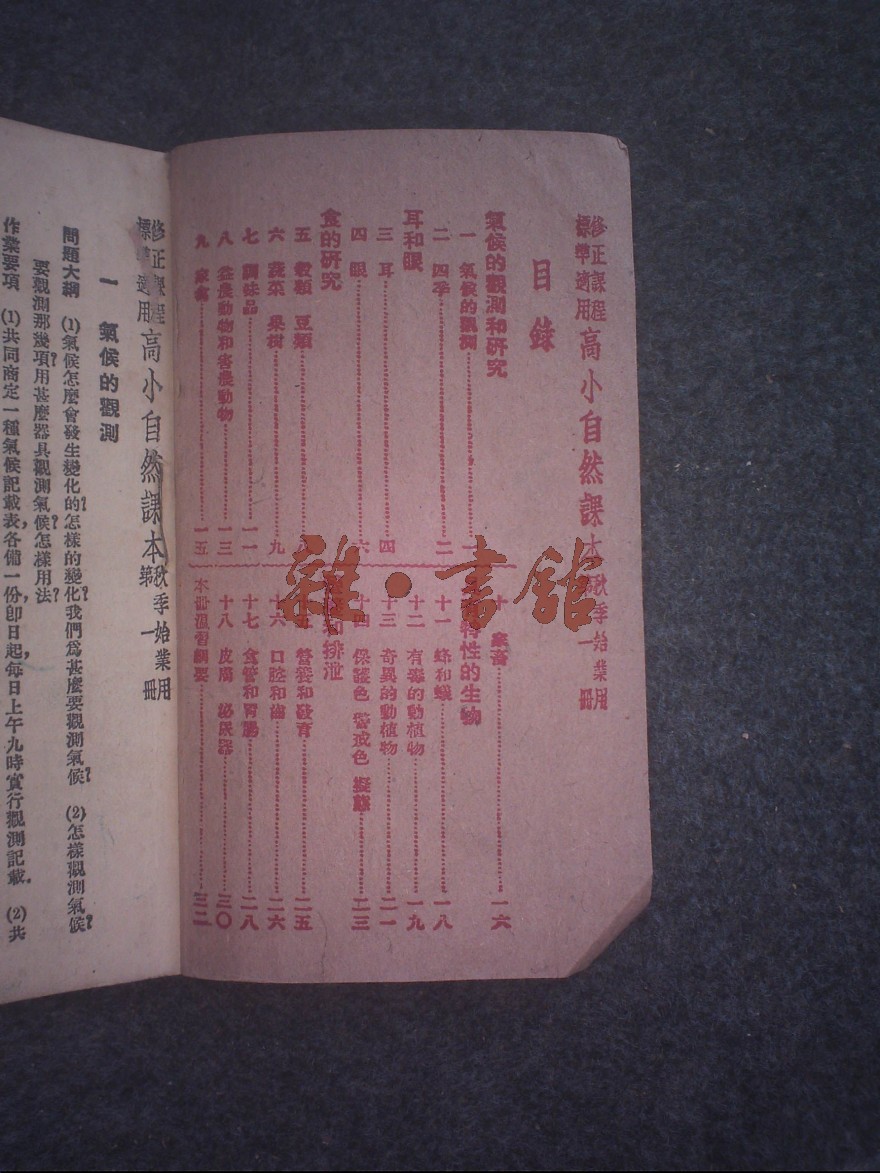 修正課程標準適用 高小自然課本 秋季始業用 第一冊
目錄
氣候的觀測和研究
一 氣候的觀測……一
二 四季……二
耳和眼
三 耳……四
四 眼……六
食的研究
五 穀類 豆類……八
六 蔬菜 果樹……九
七 調味品……一一
八 益農動物和害農動物……一三
九 家禽……一五
十 家畜……一六
特性的生物
十一 蜂和蟻……一八
十二 有毒的動植物……一九
十三 奇異的動植物……二一
十四 保護色 警戒色 擬態……二三
排泄
營養和發育……二五
十六 口腔和齒……二六
十七 食管和胃腸……二八
十八 皮膚 泌尿器……三〇
本冊溫習綱要……三二
雜·書館
修正課程標準適用 高小自然課本 秋季始業用 第一冊
一 氣候的觀測
問題大綱 (1)氣候怎麼會發生變化的?怎樣的變化?我們爲甚麼要觀測氣候? (2)怎樣觀測氣候?
要觀測那幾項?用甚麼器具觀測氣候?怎樣用法?
作業要項 (1)共同商定一種氣候記載表,各備一份,卽日起,每日上午九時實行觀測記載。 (2)共